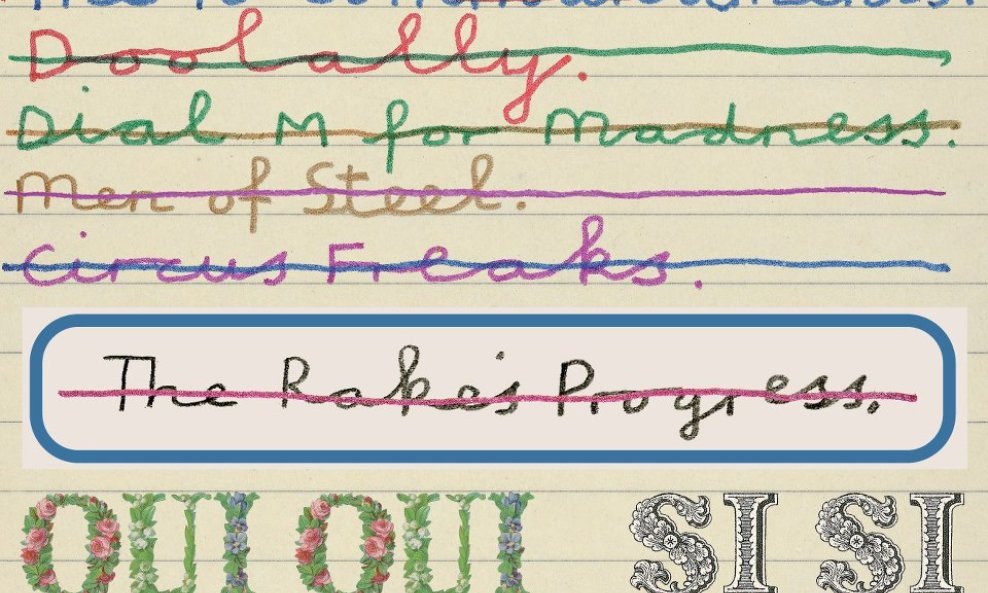 Doolally.
Dial M for Madness.
Men of Steel.
Circus Freaks.
The Rake's Progress.
OUI OUI SI SI